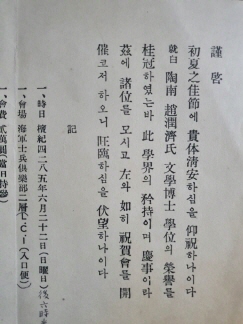 謹啓
初夏之佳節에 貴体淸安하심을 仰祝하나이다
就白 陶南 趙潤濟氏 文學博士 學位의 榮譽를
桂冠하였는바 此 學界의 矜持이며 慶事이라
玆에 諸位를 모시고 左와 如히 祝賀會를 開
催코저 하오니 旺臨하심을 伏望하나이다
記
一、時日 檀紀四二八五年六月二十二日(日曜日)後六時
一、會場 海軍士兵俱樂部二層 L·C·I(入口便)
一、會費 (當日持參)